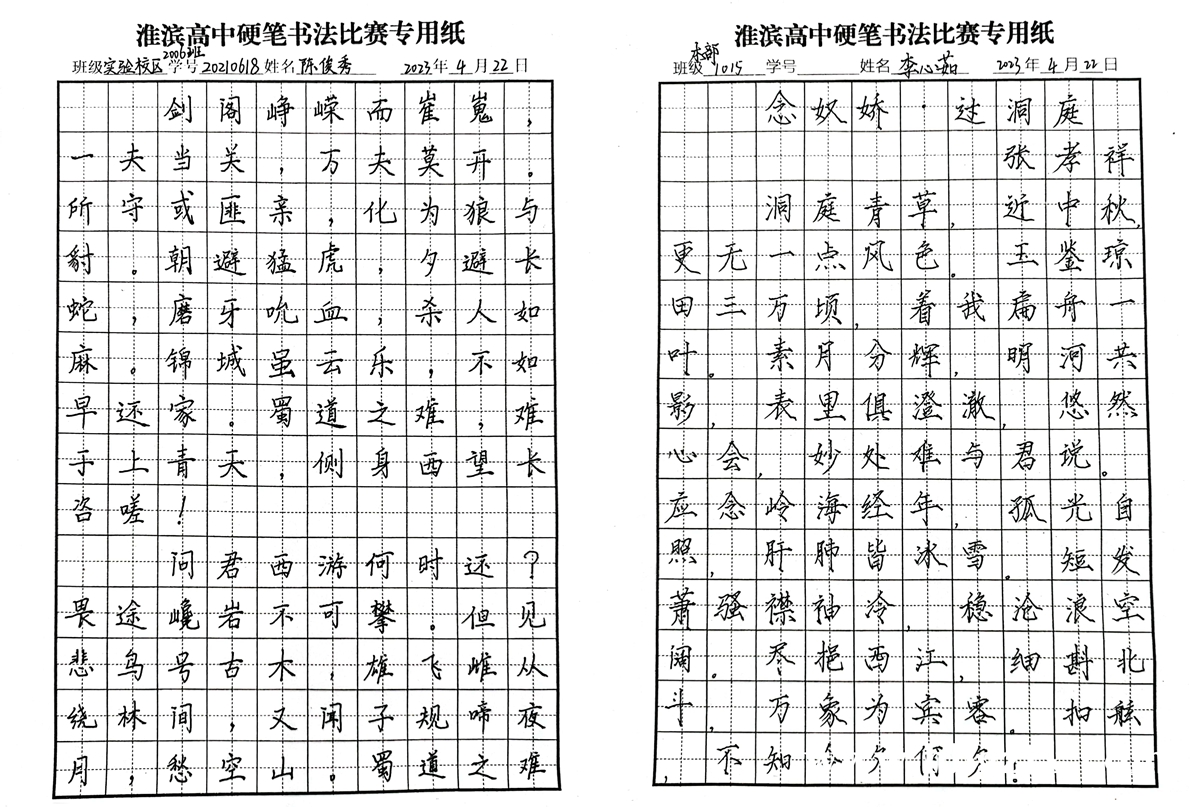 淮滨高中硬笔书法比赛专用纸
2006班
班级实验校区学号20210618姓名陈俊秀 2023年4月22日
剑阁峥嵘而崔嵬，
一夫当关，万夫莫开。
所守或匪亲，化为狼与
豺。朝避猛虎，夕避长
蛇，磨牙吮血，杀人如
麻。锦城虽云乐，不如
早还家。蜀道之难，难
于上青天，侧身西望长
咨嗟！
问君西游何时还？
畏途巉岩不可攀。但见
悲鸟号古木，雄飞雌从
绕林间，又闻子规啼夜
月，愁空山。蜀道之难
淮滨高中硬笔书法比赛专用纸
本部
班级1015 学号 姓名李心茹 2023年4月22日
念奴娇·过洞庭
张孝祥
洞庭青草，近中秋，
更无一点风色。玉鉴琼
田三万顷，着我扁舟一
叶。素月分辉，明河共
影，表里俱澄澈，悠然
心会，妙处难与君说。
应念岭海经年，孤光自
照，肝肺皆冰雪。短发
萧骚襟袖冷，稳沧浪空
阔。尽挹西江，细斟北
斗，万象为宾客。扣舷
，不知今夕何夕！